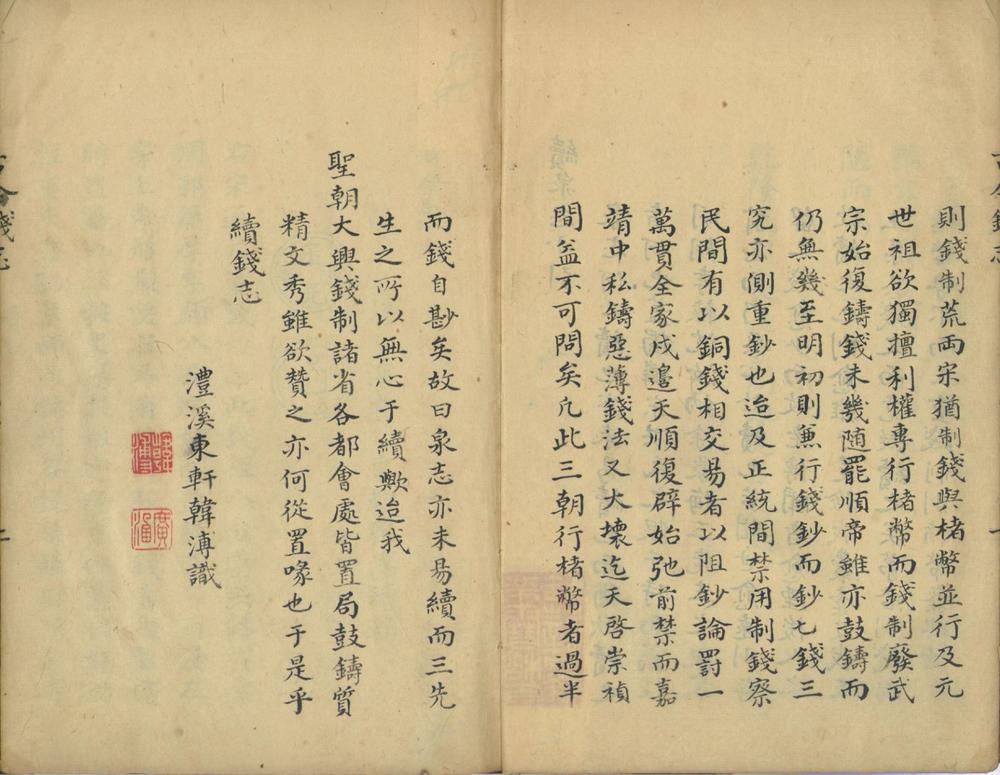 則錢制荒両宋猶制錢與楮幣並行及元
世祖欲獨擅利權專行楮幣而錢制廢武
宗始復鑄錢未幾随罷順帝雖亦鼓鑄而
仍無幾至明初則兼行錢鈔而鈔七錢三
究亦側重鈔也迨及正統間禁用制錢察
民間有以銅錢相交易者以阻鈔論罰一
萬貫全家戍邉天順復辟始弛前禁而嘉
靖中私鑄惡薄錢法又大壊迄天啓崇禎
間益不可問矣凢此三朝行楮幣者過半
而錢自尠矣故曰泉志亦未易續而三先
生之所以無心于續歟迨我
聖朝大興錢制諸省各都會處皆置局鼓鑄質
精文秀雖欲贊之亦何從置喙也于是乎
續錢志
澧溪東軒韓溥識